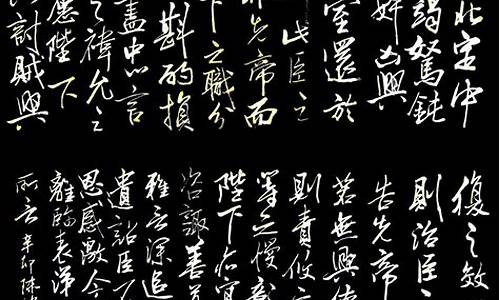 北定中
竭駑鈍
奸凶興
室還於
此臣之
先帝而
下之職分
斟酌損
盡忠言
之禕允之
愿陛下
討賊興
復之效
則治臣
告先帝
若無興德
則責攸之
等之慢
陛下亦宜
諮諏善
雅言深追
遺詔臣不
恩感激今
離臨表涕
所言 辛卯